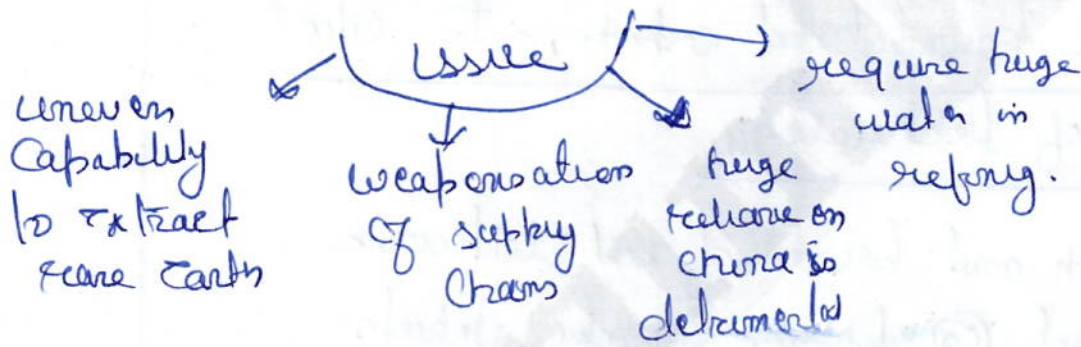 Issue
uneven
Capability
to extract
rare Earth
weaponsation
of supply
Chains
huge
reliance on
china is
detrimental
require huge
water in
refining.